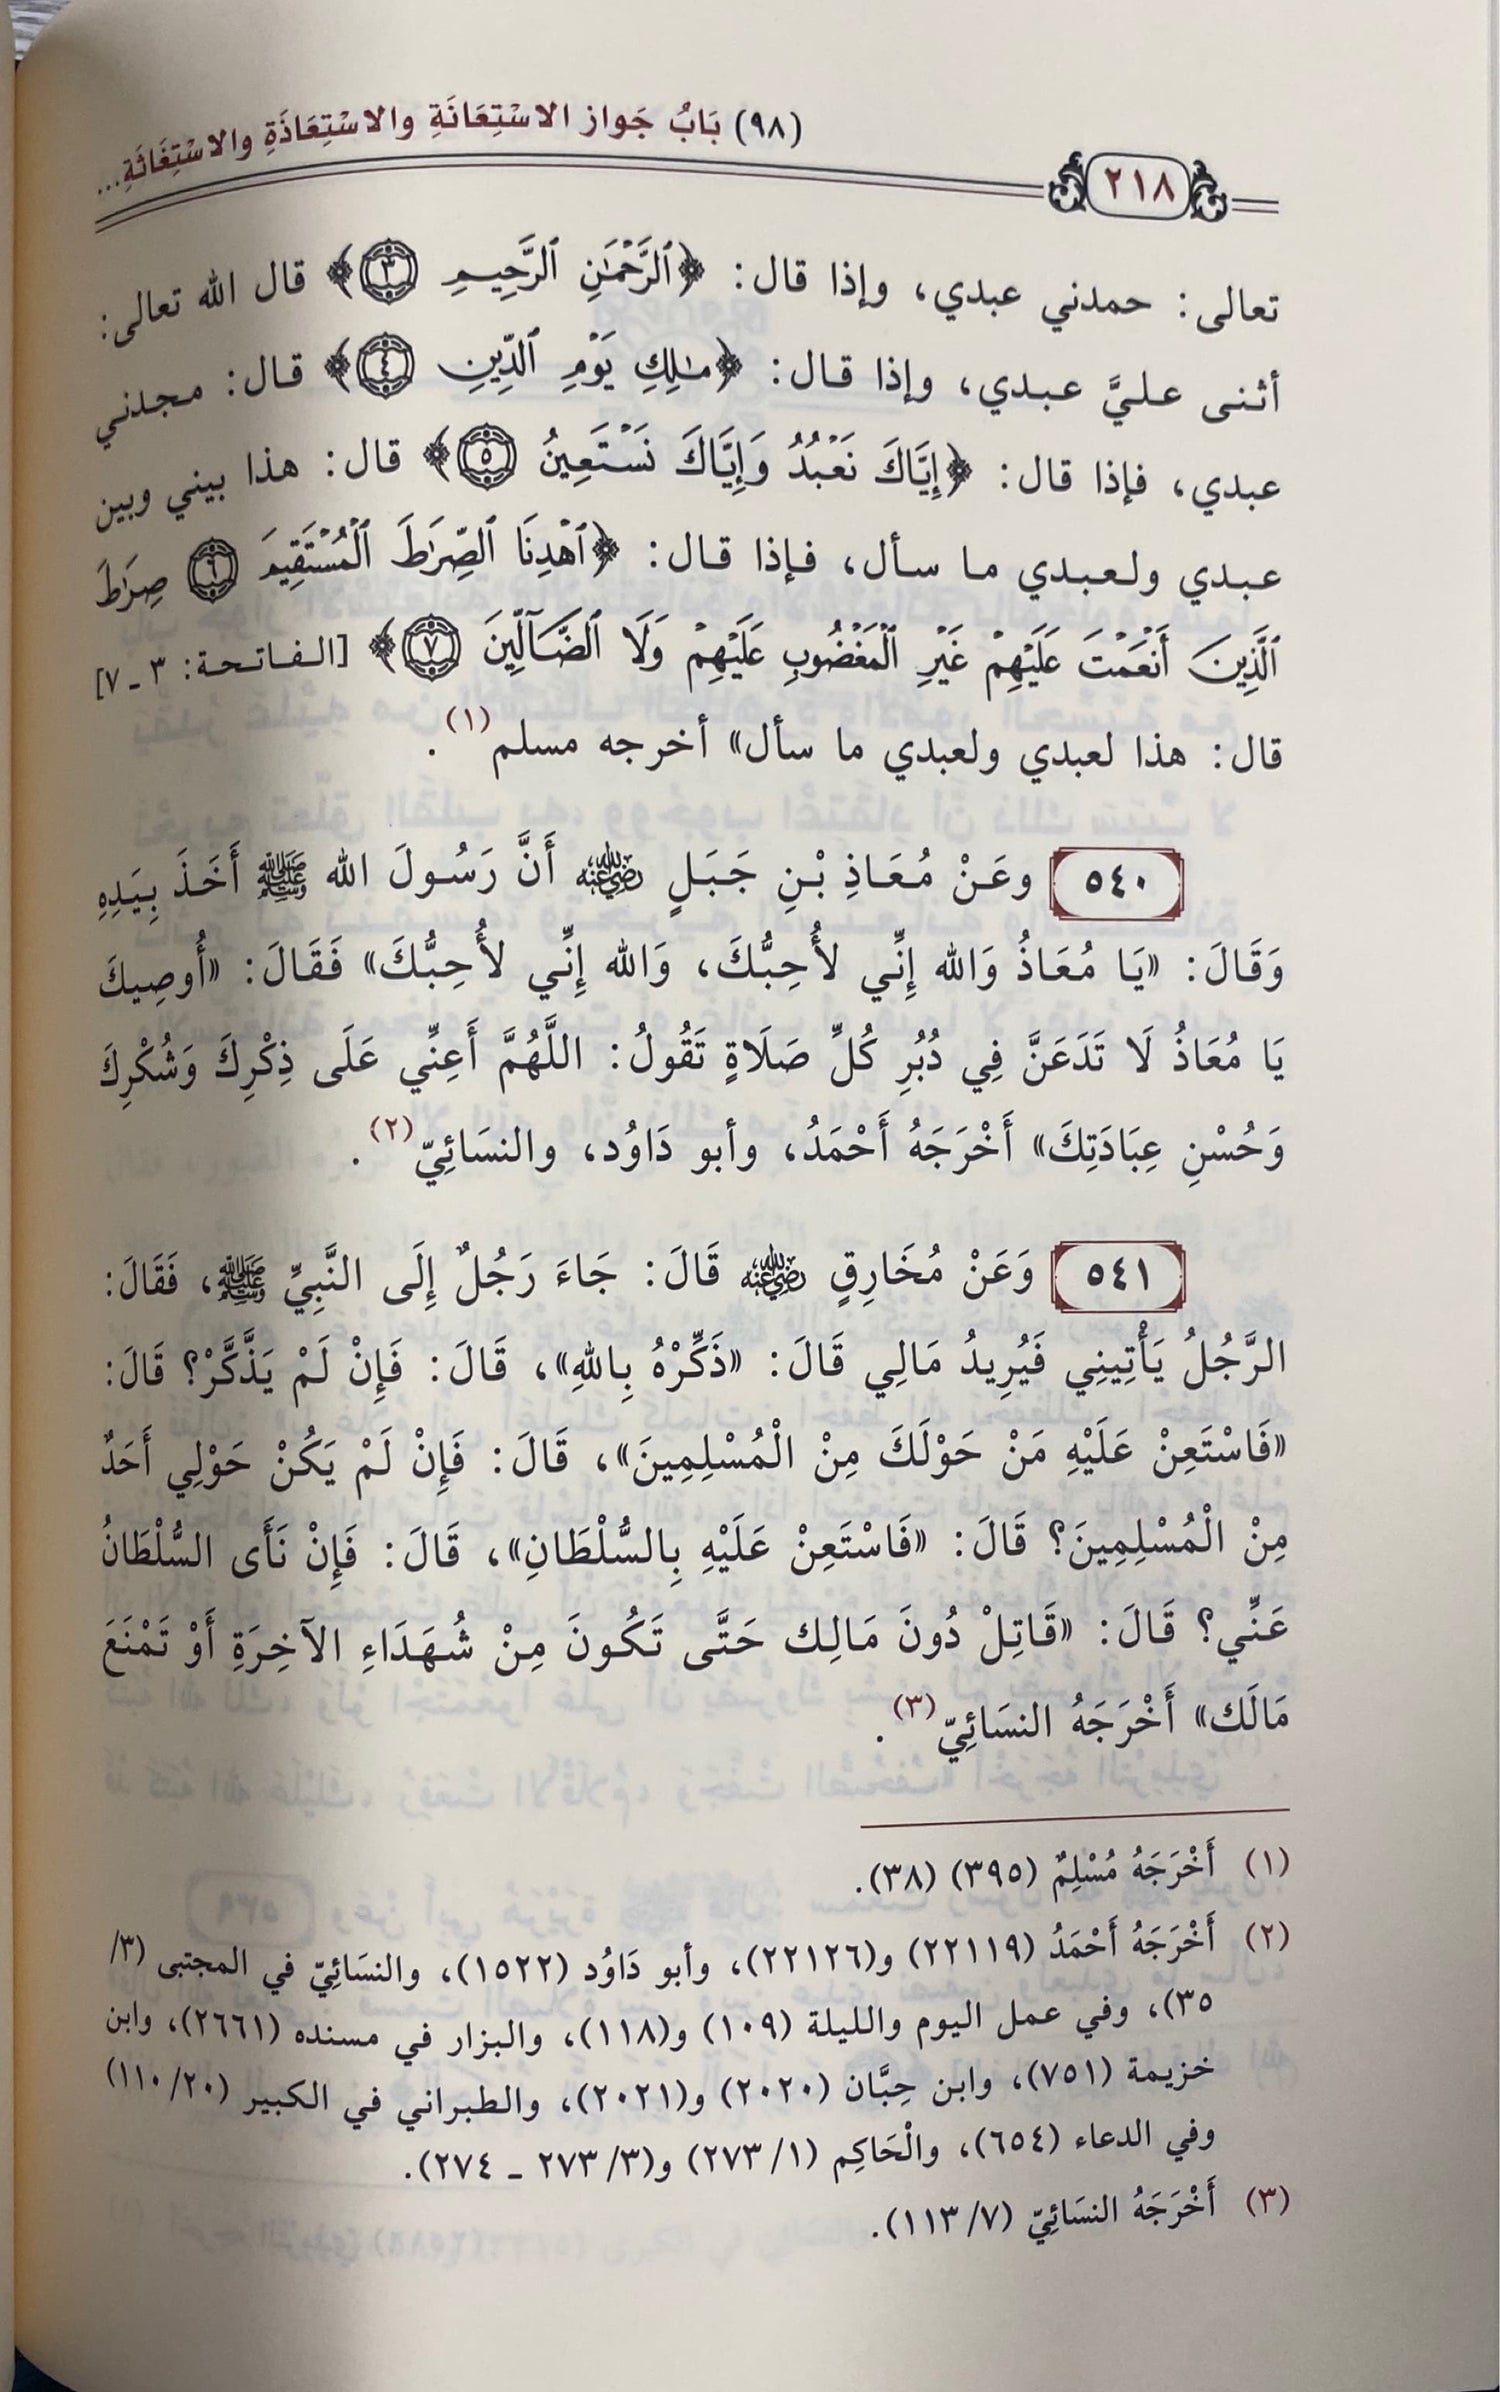 (٩٨) بَابُ جَواز الاسْتِعَانَةِ والاسْتِعَاذَةِ والاسْتِغَاثَةِ...
٢١٨
تعالى: حمدني عبدي، وإذا قال: ﴿ٱلرَّحْمَٰنِ ٱلرَّحِيمِ ٣﴾ قال الله تعالى:
أثنى عليَّ عبدي، وإذا قال: ﴿مَٰلِكِ يَوْمِ ٱلدِّينِ ٤﴾ قال: مجدني
عبدي، فإذا قال: ﴿إِيَّاكَ نَعْبُدُ وَإِيَّاكَ نَسْتَعِينُ ٥﴾ قال: هذا بيني وبين
عبدي ولعبدي ما سأل، فإذا قال: ﴿ٱهْدِنَا ٱلصِّرَٰطَ ٱلْمُسْتَقِيمَ ٦ صِرَٰطَ
ٱلَّذِينَ أَنْعَمْتَ عَلَيْهِمْ غَيْرِ ٱلْمَغْضُوبِ عَلَيْهِمْ وَلَا ٱلضَّآلِّينَ ٧﴾ [الفاتحة: ٣ ـ ٧]
قال: هذا لعبدي ولعبدي ما سأل» أخرجه مسلم(١).
٥٤٠ وعَنْ مُعَاذِ بْنِ جَبَلٍ رضي الله عنه أَنَّ رَسُولَ الله ﷺ أَخَذَ بِيَدِهِ
وَقَالَ: «يَا مُعَاذُ وَالله إِنِّي لأُحِبُّكَ، وَالله إِنِّي لأُحِبُّكَ» فَقَالَ: «أُوصِيكَ
يَا مُعَاذُ لَا تَدَعَنَّ فِي دُبُرِ كُلِّ صَلَاةٍ تَقُولُ: اللَّهُمَّ أَعِنِّي عَلَى ذِكْرِكَ وَشُكْرِكَ
وَحُسْنِ عِبَادَتِكَ» أَخْرَجَهُ أَحْمَدُ، وأبو دَاوُد، والنسَائِيّ(٢).
٥٤١ وَعَنْ مُخَارِقٍ رضي الله عنه قَالَ: جَاءَ رَجُلٌ إِلَى النَّبِيِّ ﷺ، فَقَالَ:
الرَّجُلُ يَأْتِينِي فَيُرِيدُ مَالِي قَالَ: «ذَكِّرْهُ بِاللهِ»، قَالَ: فَإِنْ لَمْ يَذَّكَّرْ؟ قَالَ:
«فَاسْتَعِنْ عَلَيْهِ مَنْ حَوْلَكَ مِنْ الْمُسْلِمِينَ»، قَالَ: فَإِنْ لَمْ يَكُنْ حَوْلِي أَحَدٌ
مِنْ الْمُسْلِمِينَ؟ قَالَ: «فَاسْتَعِنْ عَلَيْهِ بِالسُّلْطَانِ»، قَالَ: فَإِنْ نَأَى السُّلْطَانُ
عَنِّي؟ قَالَ: «قَاتِلْ دُونَ مَالِك حَتَّى تَكُونَ مِنْ شُهَدَاءِ الآخِرَةِ أَوْ تَمْنَعَ
مَالَك» أَخْرَجَهُ النسَائِيّ(٣).
(١) أَخْرَجَهُ مُسْلِمٌ (٣٩٥) (٣٨).
(٢) أَخْرَجَهُ أَحْمَدُ (٢٢١١٩) و(٢٢١٢٦)، وأبو دَاوُد (١٥٢٢)، والنسَائِيّ في المجتبى (٣/
٣٥)، وفي عمل اليوم والليلة (١٠٩) و(١١٨)، والبزار في مسنده (٢٦٦١)، وابن
خزيمة (٧٥١)، وابن حِبَّان (٢٠٢٠) و(٢٠٢١)، والطبراني في الكبير (٢٠/ ١١٠)
وفي الدعاء (٦٥٤)، والْحَاكِم (١/ ٢٧٣) و(٣/ ٢٧٣ ـ ٢٧٤).
(٣) أَخْرَجَهُ النسَائِيّ (٧/ ١١٣).